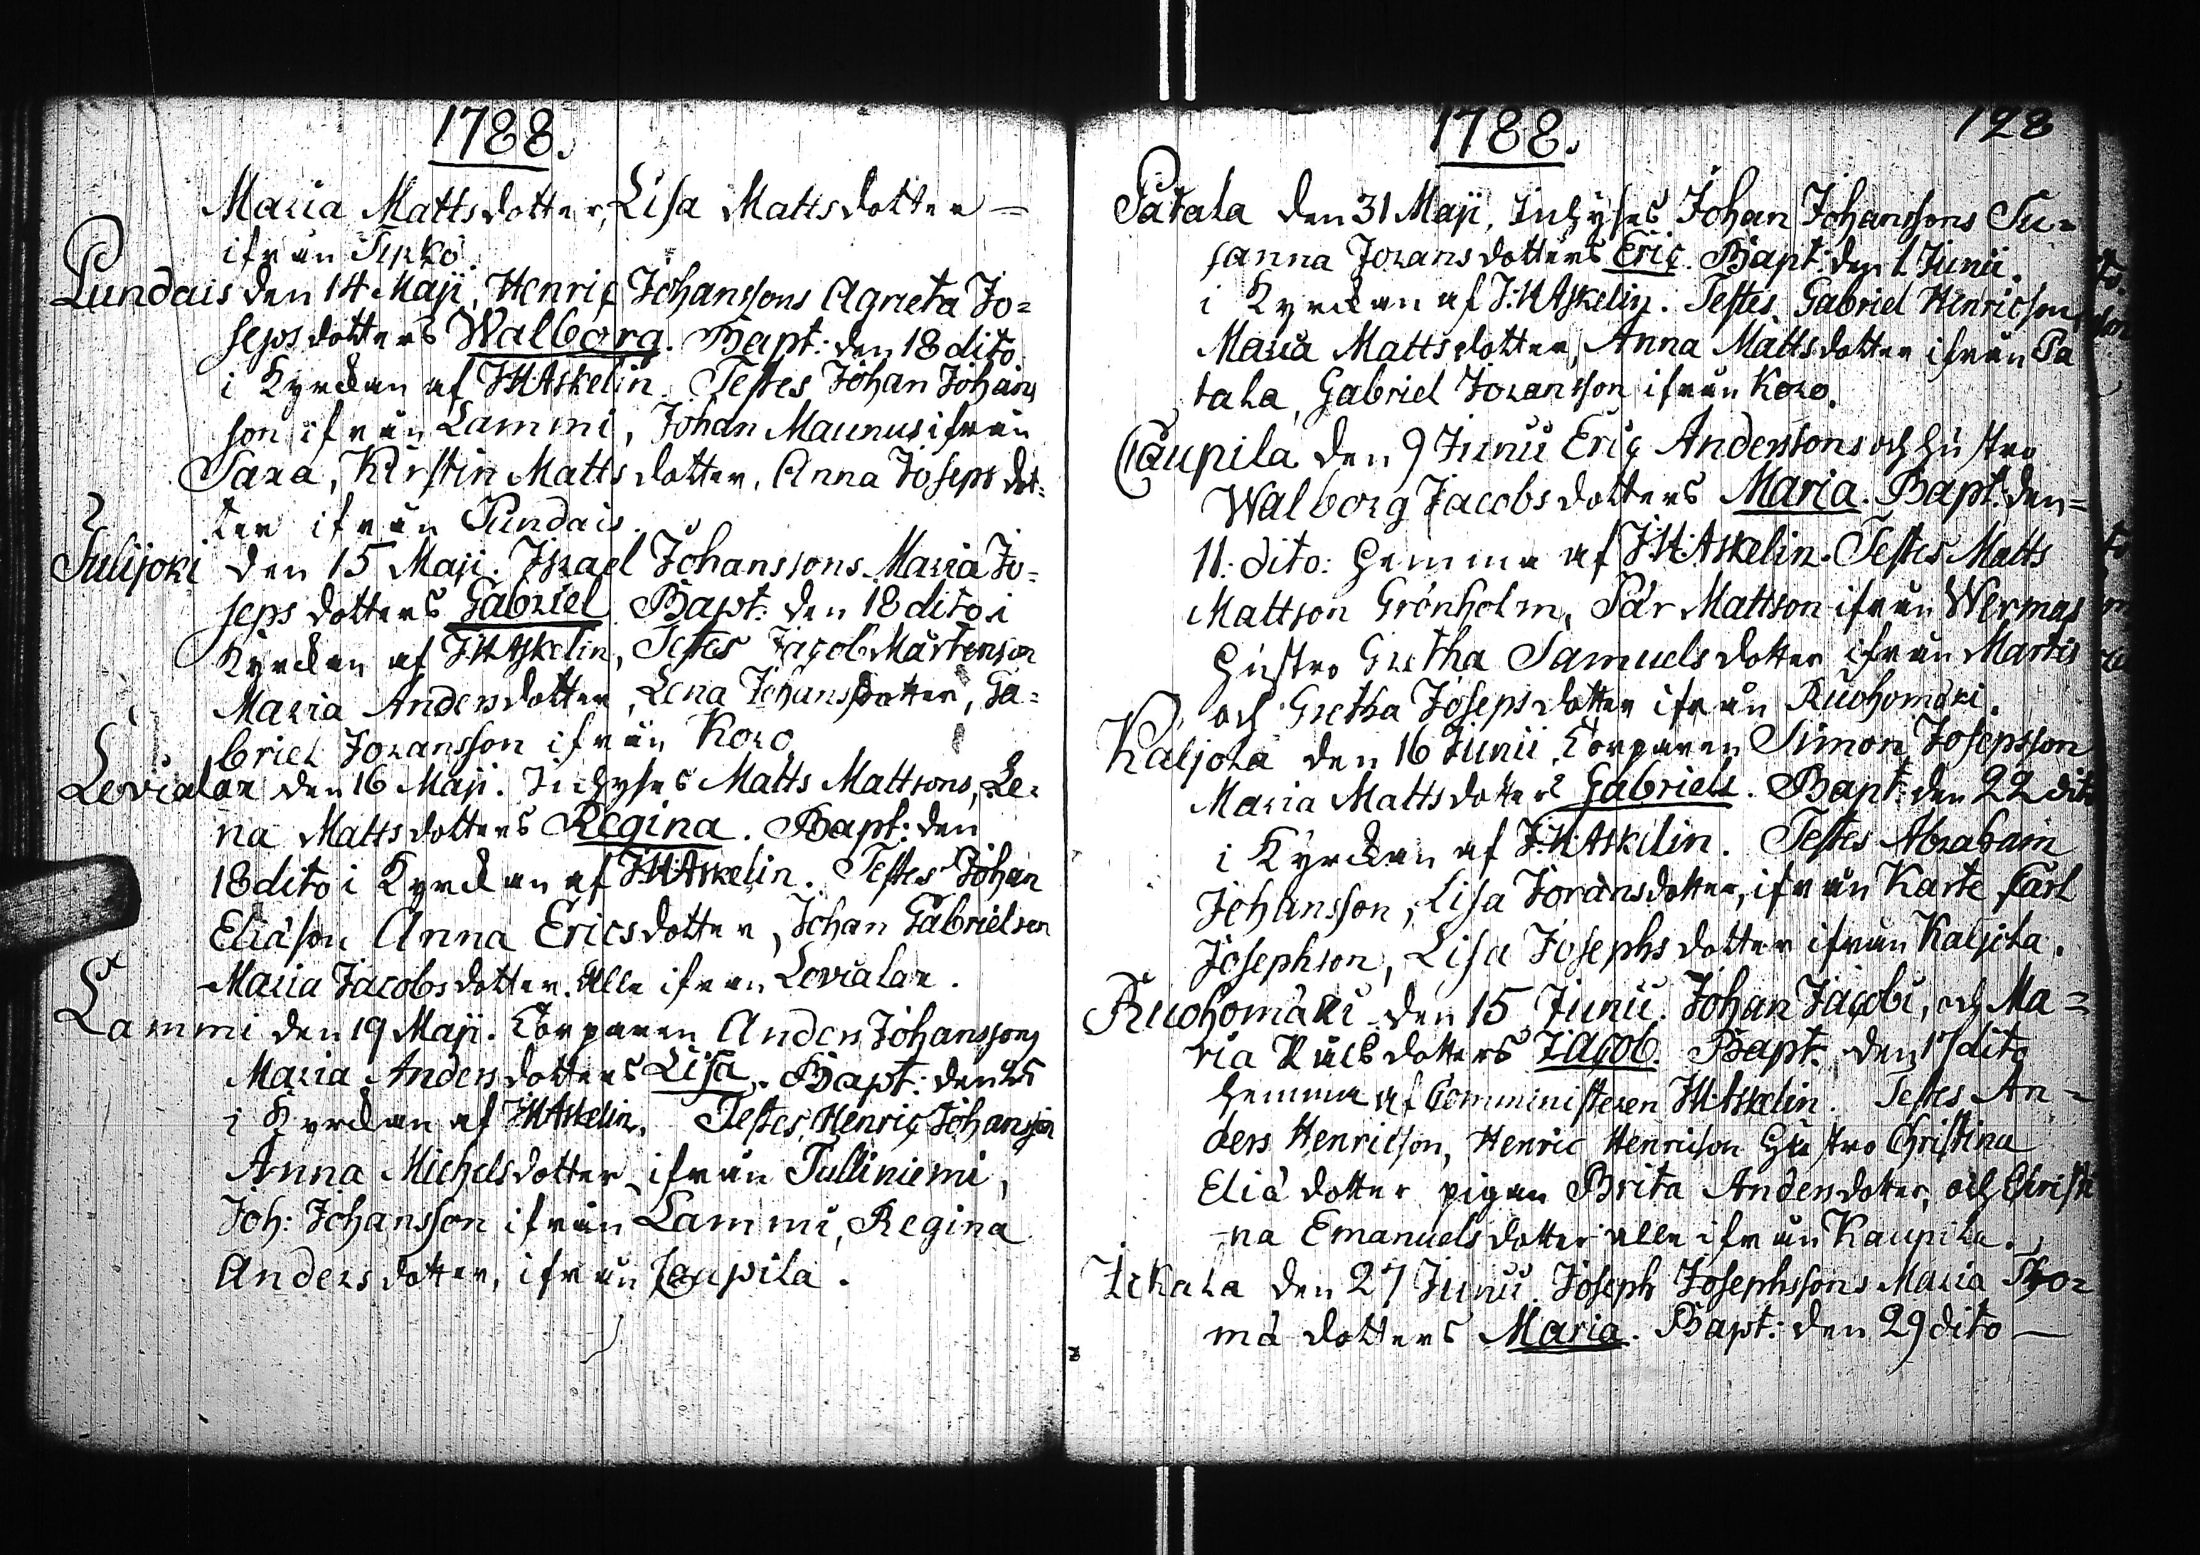 1788.
Maria Mattsdotter, Lisa Mattsdotter —
ifrån Sirko.
Pundais den 14 Maji, Henric Johanssons Agneta Jo=
sepsdotters Walborg. Bapt: den 18 dito
i Kyrckan af J.H.Askelin. Testes Johan Johans
son ifrån Lammi, Johan Maunus ifrån
Sara, Kirstin Mattsdotter, Anna Josepsdot=
ter ifrån Pundais.
Sulijoki den 15 Maji. Israel Johanssons Maria Jo=
sepsdotters Gabriel Bapt: den 18 dito i
Kyrckan af J.H.Askelin, Testes Jacob Mårtenson
Maria Andersdotter, Lena Johansdotter, Ga=
briel Joransson ifrån Koro
Levialax den 16 Maji. Inhyses Matts Mattsons, Le=
na Mattsdotters Regina. Bapt: den
18 dito i Kyrckan af J.H.Askelin. Testes Johan
Eliason Anna Ericsdotter, Johan Gabrielson
Maria Jacobsdotter. Alle ifrån Levialax.
Lammi den 19 Maji. Torparen Anders Johanssons
Maria Andersdotters Lisa. Bapt: den 25
i Kyrckan af J.H.Askelin. Testes, Henric Johansson
Anna Michelsdotter ifrån Tulliniemi,
Joh: Johansson ifrån Lammi, Regina
Andersdotter, ifrån Caupila.
1788. 128
Patala den 31 Maji, Inhyses Johan Johanssons Su=
sanna Joransdotters Eric. Bapt: den 1 Junii.
i Kyrckan af J.H.Askelin. Testes Gabriel Henricson,
Maria Mattsdotter, Anna Mattsdotter ifrån Pa
tala, Gabriel Joransson ifrån Koro.
Caupila den 9 Junii Eric Anderssons och hustro
Walborg Jacobsdotters Maria. Bapt: den=
11. dito: hemma af J.H.Askelin. Testes Matts
Mattson Grönholm, Pär Mattson ifrån Wermas
hustro Gretha Samuelsdotter ifrån Martis
och Gretha Josepsdotter ifrån Ruohomäki.
Kaljola den 16 Junii, Torparen Simon Josepsson
Maria Mattsdotters Gabriels. Bapt: den 22 dito
i Kyrckan af J.H.Askelin. Testes Abraham
Johansson, Lisa Joransdotter, ifrån Karte, Carl
Josephson, Lisa Josephsdotter ifrån Kaljola.
Ruohomäki den 15 Junii. Johan Jacobs, och Ma=
ria dotters Jacob. Bapt: den 17 dito
hemma af Comministeren J.H.Askelin. Testes An=
ders Henricson, Henric Henricson hustro Christina
Elia dotter pigan Brita Andersdotter, och Christi
na Emanuelsdotter alle ifrån Kaupila.
den 27 Junii. Joseph Josephssons Maria Tho=
mä dotters Maria. Bapt: den 29 dito —